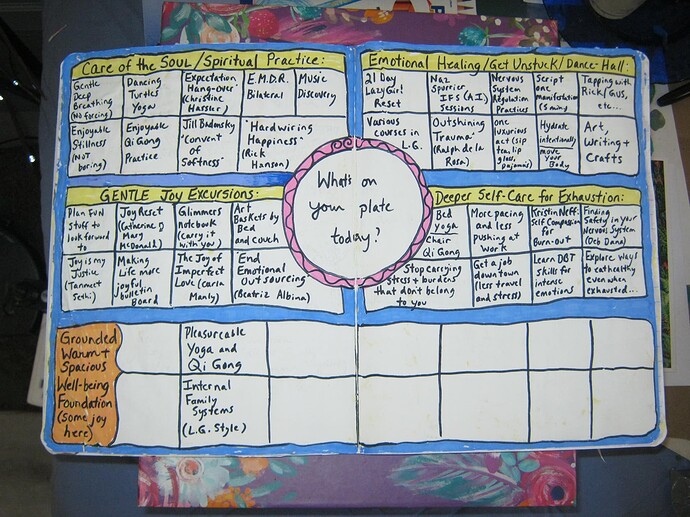 Care of the SOUL/Spiritual Practice:
Gentle
Deep
Breathing
(No forcing)
Dancing
Turtles
Yoga
Expectation
Hang-over"
(Christine
Hassler)
E.M.D.R.
Bilateral
Music
Discovery
Enjoyable
Stillness
(NOT
boring)
Enjoyable
Qi Gong
Practice
Jill Badonsky
"Convent
of
Softness"
"Hardwiring
Happiness"
(Rick
Hanson)
Emotional Healing/Get Unstuck/Dance-Hall:
21 Day
Lazy Girl
Reset
Naz
IFS (A.I.)
Sessions
Nervous
System
Regulation
Practices
Script
one
manifestation
5 mins
Tapping with
Rick/Gus,
etc...
Various
courses in
L.G.
Outshining
Trauma"
(Ralph de la
Rosa)
one
luxurious
act (sip
tea, lip
gloss,
pajamas)
Hydrate
intentionally
move your
Body
Art,
Writing +
Crafts
What's on
your plate
today?
GENTLE Joy Excursions:
Plan FUN
Stuff to
look forward
to
Joy Reset
(Catherine
Mary
McDonald)
Glimmers
notebook
(carry it
with you)
Art
Baskets by
Bed
and couch
Joy is my
Justice
(Tanmeet
Sethi)
Making
Life more
joyful
bulletin
Board
The Joy of
Imperfect
Love (Carla
Manly)
"End
Emotional
Outsourcing
(Beatriz Albina)
Deeper Self-Care for Exhaustion:
Bed
yoga
Chair
Qi Gong
More pacing
and less
pushing at
work
Kristin Neff:
Self Compassion
for
Burn-out
Finding
Safety in Your
Nervous System
(Deb Dana)
Stop carrying
stress + burdens
that don't belong
to you
Get a job
down town
(less travel
and stress)
Learn DBT
Skills for
intense
emotion
Explore ways
to eat healthy
even when
exhausted...
Grounded
Warm +
Spacious
Well-being
Foundation
(some joy
here)
Pleasurable
Yoga and
Qi Gong
Internal
Family
Systems
(L.G. Style)